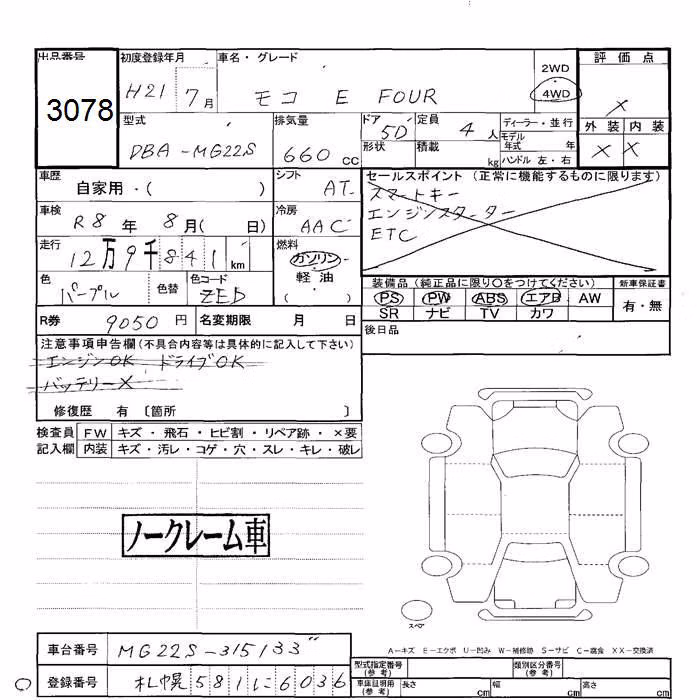 出品番号
3078
初度登録年月
H21 7月
車名・グレード
モコ E FOUR
2WD
4WD
評価点
×
外装 内装
× ×
型式
DBA-MG22S
排気量
660 cc
ドア
5D
形状
定員
4 人
積載
kg
ディーラー・並行
モデル年式 年
ハンドル 左・右
車歴
自家用・( )
シフト
AT
車検
R8 年 8月( 日)
冷房
AAC
走行
12万9千841 km
燃料
ガソリン
軽油
( )
色
パープル
色替
色コード
ZED
R券 9050 円 名変期限 月 日
セールスポイント (正常に機能するものに限ります)
スマートキー
エンジンスターター
ETC
装備品 (純正品に限り○をつけてください)
PS PW ABS エアB AW
SR ナビ TV カワ
新車保証書
有・無
後日品
注意事項申告欄(不具合内容等は具体的に記入して下さい)
エンジンOK ドライブOK
バッテリー×
修復歴 有 〔箇所 〕
検査員 FW キズ・飛石・ヒビ割・リペア跡・×要
記入欄 内装 キズ・汚レ・コゲ・穴・スレ・キレ・破レ
ノークレーム車
スペア
A-キズ E-エクボ U-凹み W-補修跡 S-サビ C-腐食 XX-交換済
車台番号 MG22S-315133"
登録番号 札幌581に6036
型式指定番号(参考)
類別区分番号(参考)
車庫証明用(参考) 長さ cm 幅 cm 高さ cm